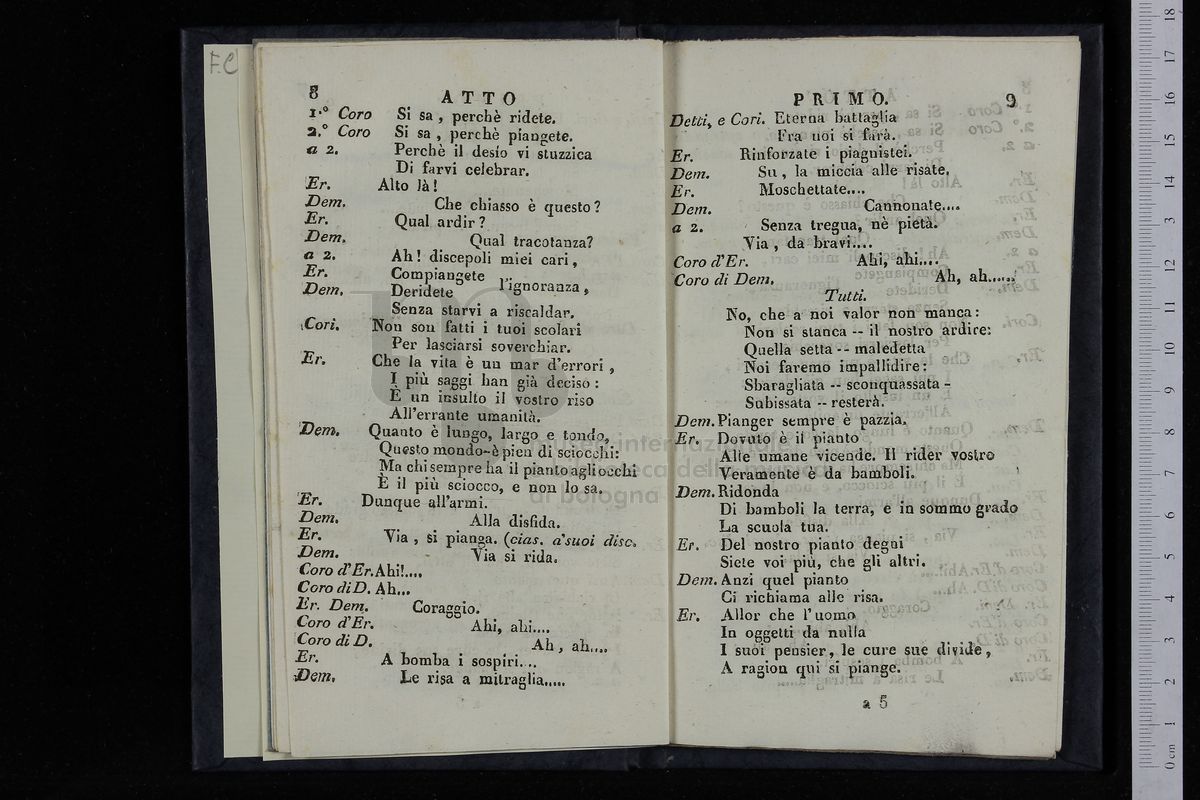 F.C
8
ATTO
1.° Coro Si sa, perchè ridete.
2.° Coro Si sa, perchè piangete.
a 2. Perchè il desio vi stuzzica
Di farvi celebrar.
Er. Alto là!
Dem. Che chiasso è questo?
Er. Qual ardir?
Dem. Qual tracotanza?
a 2. Ah! discepoli miei cari,
Er. Compiangete
Dem. Deridete l'ignoranza,
Senza starvi a riscaldar.
Cori. Non son fatti i tuoi scolari
Per lasciarsi soverchiar.
Er. Che la vita è un mar d'errori,
I più saggi han già deciso:
È un insulto il vostro riso
All'errante umanità.
Dem. Quanto è lungo, largo e tondo,
Questo mondo-è pien di sciocchi:
Ma chi sempre ha il pianto agli occhi
È il più sciocco, e non lo sa.
Er. Dunque all'armi.
Dem. Alla disfida.
Er. Via, si pianga. (cias. a' suoi disc.
Dem. Via si rida.
Coro d'Er. Ahi!....
Coro di D. Ah...
Er. Dem. Coraggio.
Coro d'Er. Ahi, ahi....
Coro di D. Ah, ah....
Er. A bomba i sospiri....
Dem. Le risa a mitraglia.....
PRIMO.
9
Detti, e Cori. Eterna battaglia
Fra noi si farà.
Er. Rinforzate i piagnistei.
Dem. Su, la miccia alle risate.
Er. Moschettate....
Dem. Cannonate....
a 2. Senza tregua, nè pietà.
Via, da bravi....
Coro d'Er. Ahi, ahi....
Coro di Dem. Ah, ah......
Tutti.
No, che a noi valor non manca:
Non si stanca -- il nostro ardire:
Quella setta -- maledetta
Noi faremo impallidire:
Sbaragliata -- sconquassata -
Subissata -- resterà.
Dem. Pianger sempre è pazzia.
Er. Dovuto è il pianto
Alle umane vicende. Il rider vostro
Veramente è da bamboli.
Dem. Ridonda
Di bamboli la terra, e in sommo grado
La scuola tua.
Er. Del nostro pianto degni
Siete voi più, che gli altri.
Dem. Anzi quel pianto
Ci richiama alle risa.
Er. Allor che l'uomo
In oggetti da nulla
I suoi pensier, le cure sue divide,
A ragion qui si piange.
a 5
museo internazionale
e biblioteca della musica
di bologna
0 cm 1 2 3 4 5 6 7 8 9 10 11 12 13 14 15 16 17 18